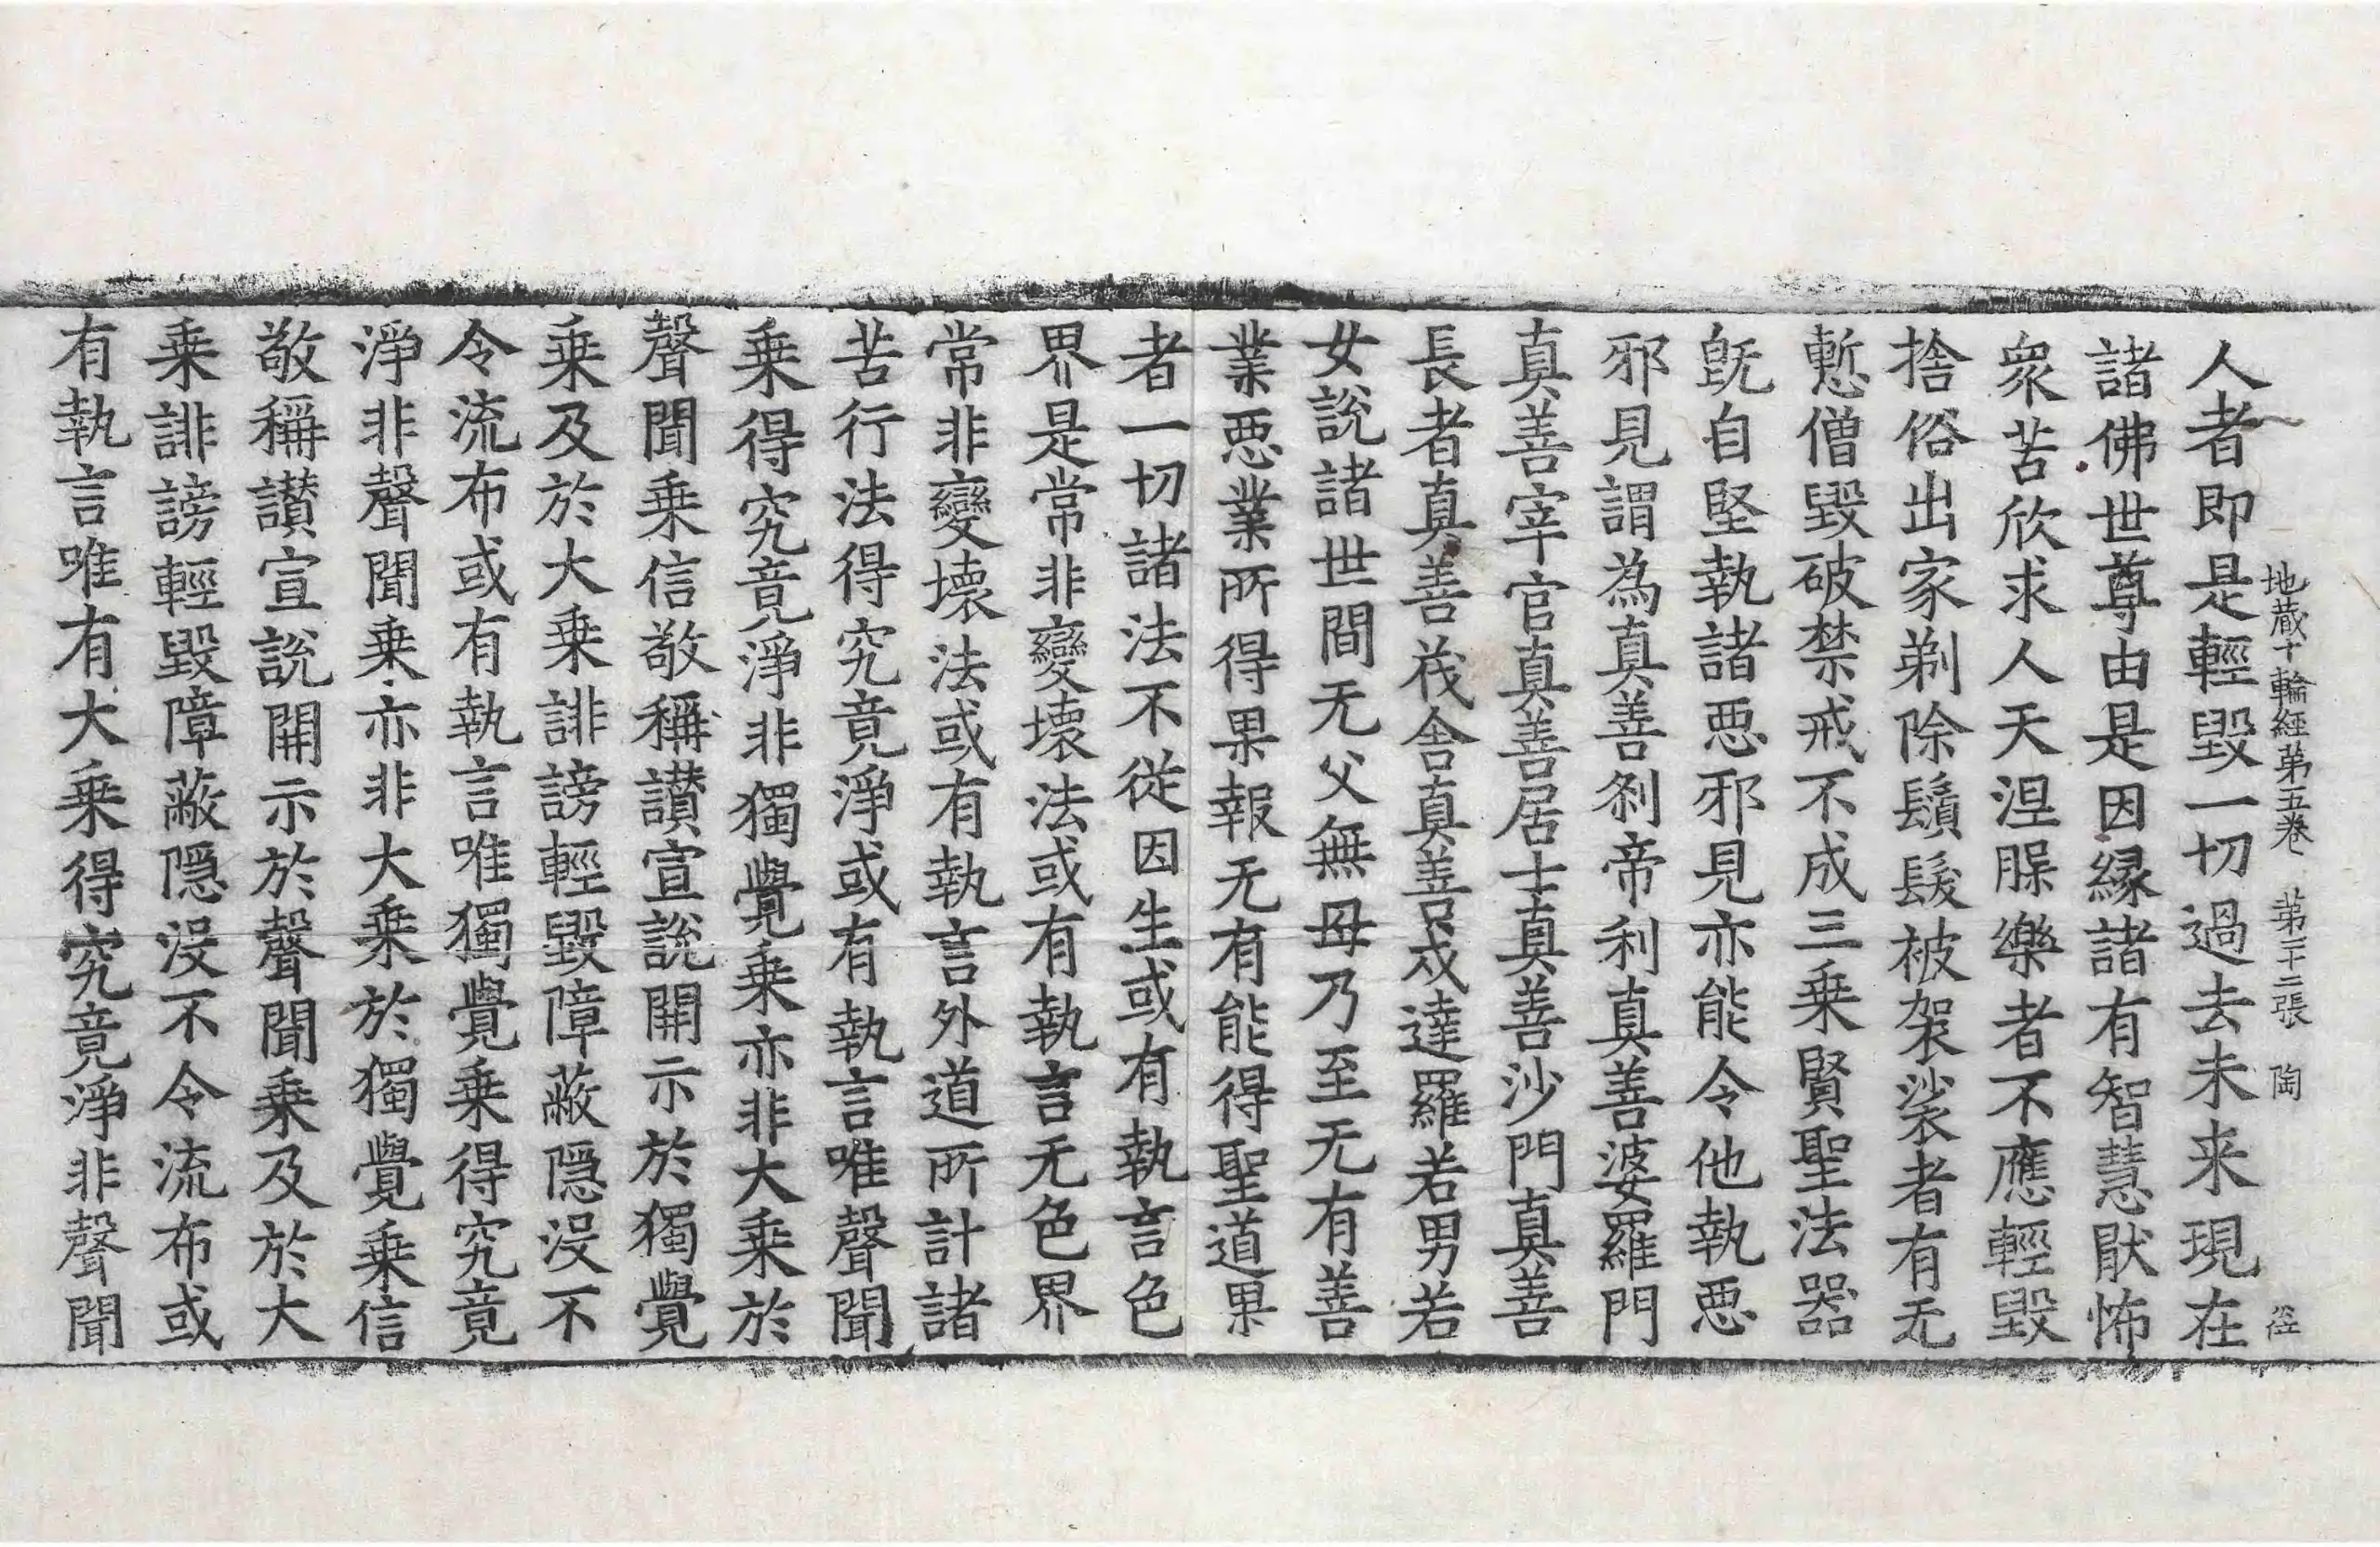 地蔵十輪經第五卷 第二十二張 陶
人者即是輕毀一切過去未来現在
諸佛世尊由是因縁諸有智慧猒怖
衆苦欣求人天涅脵樂者不應輕毀
捨俗出家剃除鬚髮被袈裟者有无
慙僧毀破禁戒不成三乗賢聖法器
旣自堅執諸惡邪見亦能令他執惡
邪見謂為真善剎帝利真善婆羅門
真善宰官真善居士真善沙門真善
長者真善茷舍真善戍達羅若男若
女説諸世間无父無母乃至无有善
業惡業所得果報无有能得聖道果
者一切諸法不從因生或有執言色
界是常非變壊法或有執言无色界
常非變壊法或有執言外道所計諸
苦行法得究竟淨或有執言唯聲聞
乗得究竟淨非獨覺乗亦非大乗於
聲聞乗信敬稱讃宣説開示於獨覺
乗及於大乗誹謗輕毀障蔽隠没不
令流布或有執言唯獨覺乗得究竟
淨非聲聞乗亦非大乗於獨覺乗信
敬稱讃宣説開示於聲聞乗及於大
乗誹謗輕毀障蔽隠没不令流布或
有執言唯有大乗得究竟淨非聲聞